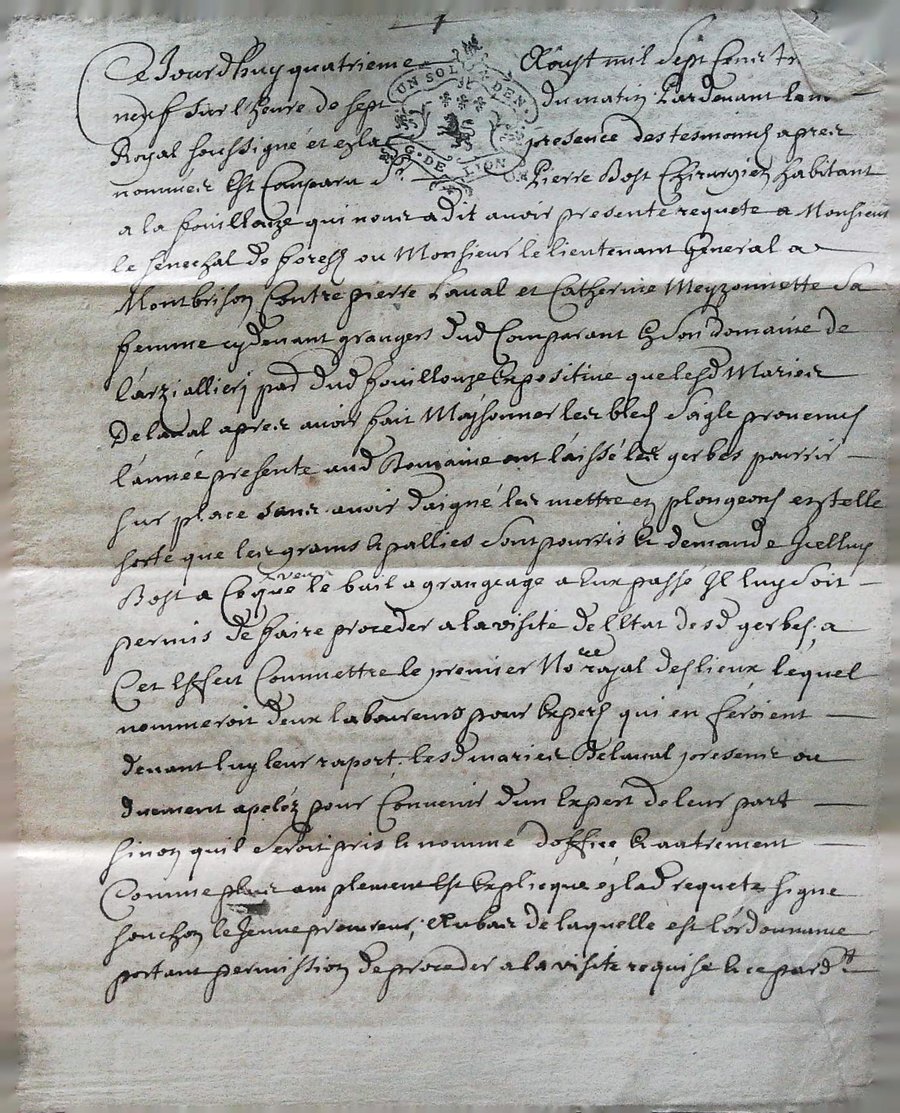 Ce Jourdhuy quatrieme Aoust mil Sept Cent
neuf sur l'heure de sept du matin Pardevant
UN SOL DEN
G. DE LION
Royal soussigné et en la presence des tesmoins apres
nommés Est Comparu Sr. Pierre Bost Chirurgien habitant
a la fouillouze qui nous a dit avoir presente requete a Monsieur
le senechal de forests ou Monsieur le lieutenant General a
Montbrison Contre pierre Laval et Catherine Meyzonnette Sa
femme cydevant grangers dud Comparant en Son domaine de
l'arziallieri pard dud fouillouze Expositive que lesd Maries
Delaval apres avoir fait Moyssonner les bleds Sagle provenus
l'année presente aud Domaine ont laissé les gerbes pourrir
sur place sans avoir daigné les mettre en plongeons en telle
sorte que les grains & pallies Sont pourris & demande Icelluy
Bost a Ce que le bail a grangeage a Eux passé Il luy Soit
permis de faire proceder a la visite de l'Etat desd gerbes, a
Cet Effect Commettre le premier Nore royal des lieux lequel
nommeroit deux laboureurs pour Experts qui en feroient
devant luy leur raport. lesd maries Delaval presents ou
duement apelés pour Convenir d'un Expert de leur part
sinon quil Seroit pris & nommé d'office & autrement
Comme plus amplement Est Explicqué en lad requete signé
souchon le Jeune procureur, Au bas de laquelle est l'ordonnance
portant permission de proceder a la visite requise & ce pardt